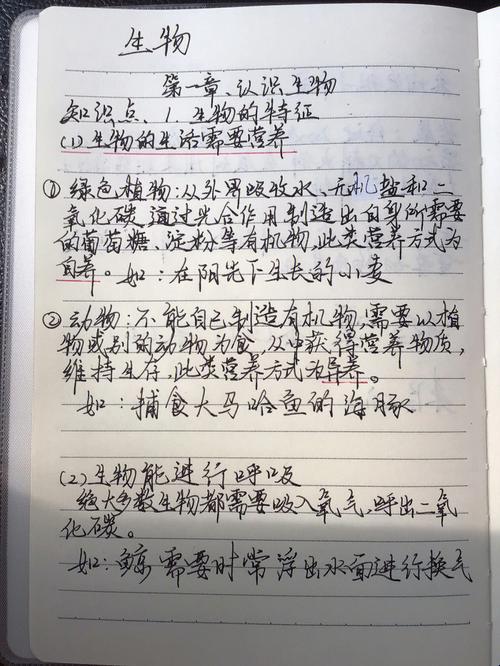 生物
第一章、认识生物
知识点、1.生物的特征
(1)生物的生活需要营养
①绿色植物:从外界吸收水、无机盐和二
氧化碳,通过光合作用制造出自身所需要
的葡萄糖、淀粉等有机物,此类营养方式为
自养。如:在阳光下生长的小麦
②动物:不能自己制造有机物,需要以植
物或别的动物为食,从中获得营养物质,
维持生存,此类营养方式为异养。
如:捕食大马哈鱼的海豚
(2)生物能进行呼吸
绝大多数生物都需要吸入氧气,呼出二氧
化碳。
如:鲸需要时常浮出水面进行换气